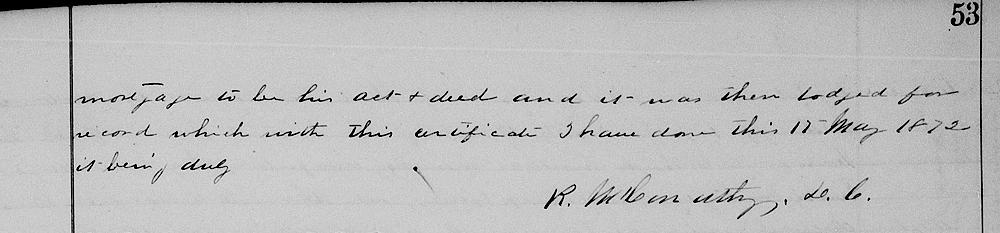 53
mortgage to be his act & deed and it was then lodged for
record which with this certificate I have done this 17 May 1872
it being duly
R. McConathy, D. C.